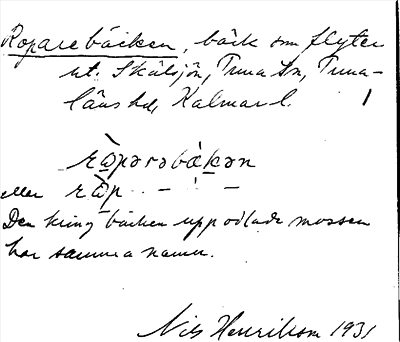 Roparebäcken, bäck som flyter
ut. Skälsjön, Tuna sn, Tuna-
läns hd, Kalmar l.
råpərəbäkən
eller råp – ' –
Den kring bäcken uppodlade mossen
har samma namn.
Nils Henrikson 1931